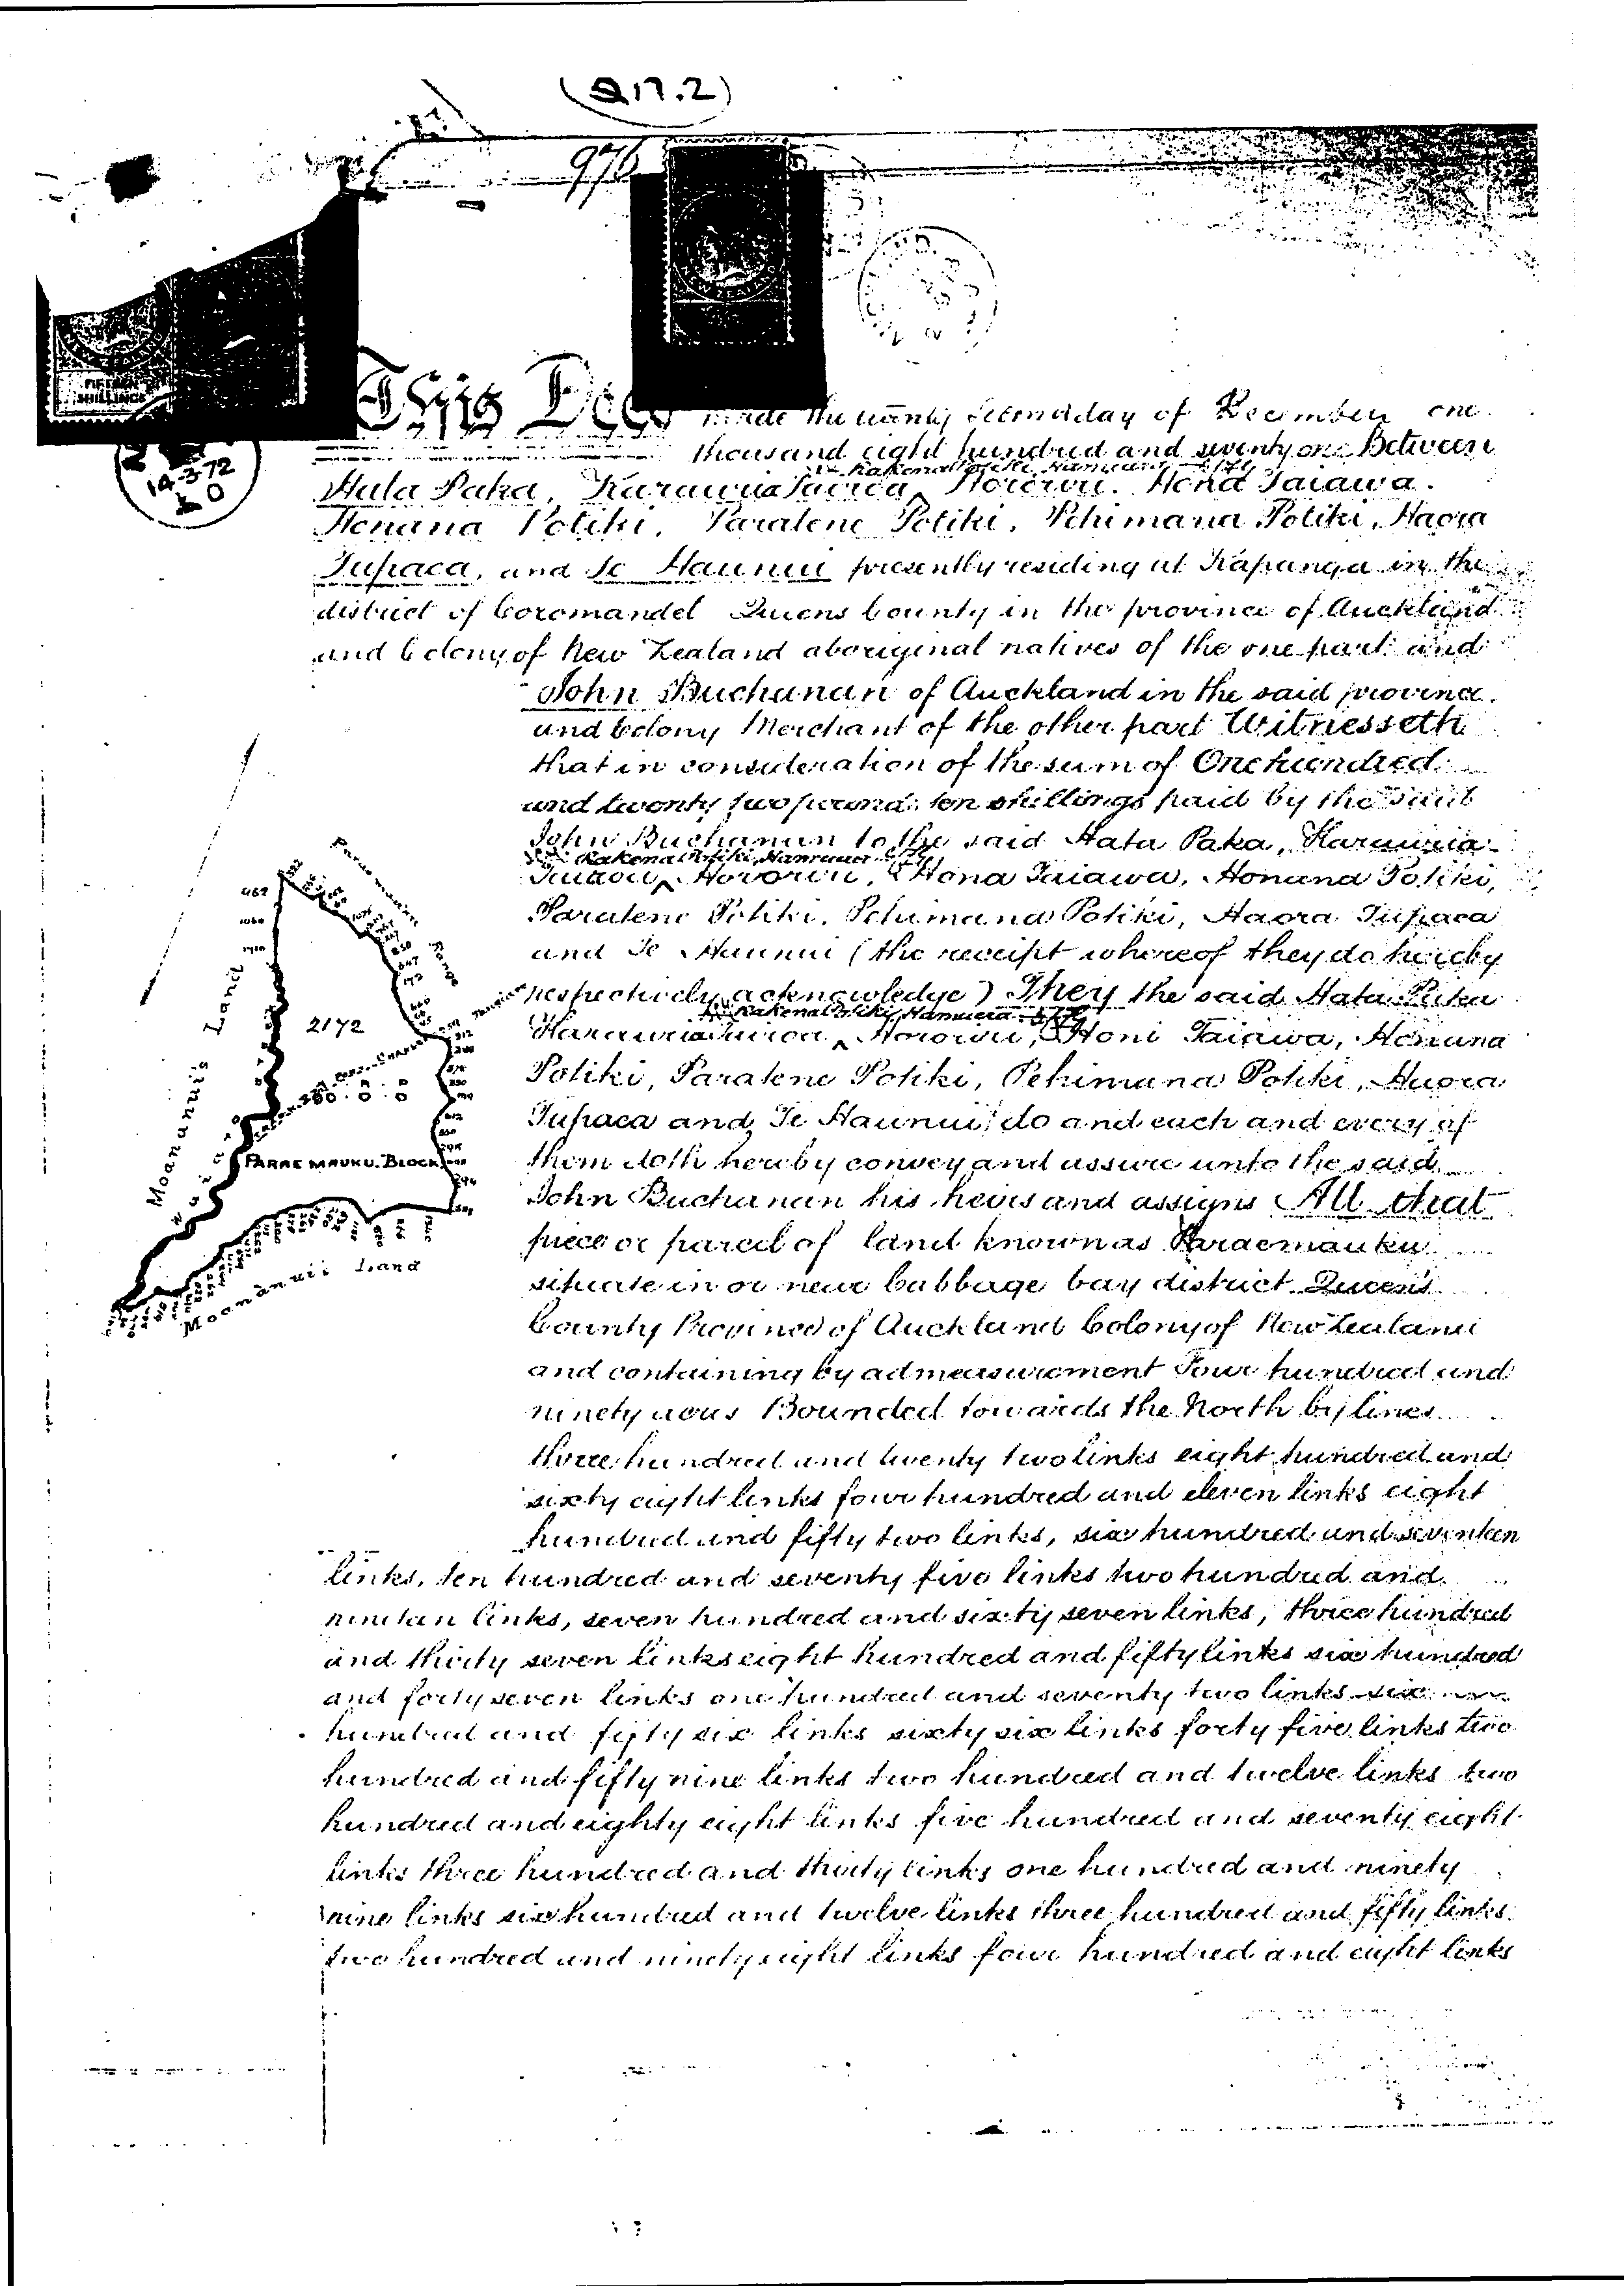 (217.2)
976
NEW ZEALAND
FIFTEEN
SHILLINGS
NEW ZEALAND
14.3.72
This Deed made the twenty second day of December one
thousand eight hundred and seventy one Between
Hata Paka, Karauria Tairoa, Hororiri. Hona Taiawa.
Honana Potiki, Paratene Potiki, Pehimana Potiki, Haora
Tupaea, and Te Haunui presently residing at Kapanga in the
district of Coromandel Queens County in the province of Auckland
and Colony of New Zealand aboriginal natives of the one part and
John Buchanan of Auckland in the said province
and Colony Merchant of the other part Witnesseth
that in consideration of the sum of One hundred
and twenty two pounds ten shillings paid by the said
John Buchanan to the said Hata Paka, Karauria
Rakena Potiki, Hamiora
Tairoa, Hororiri, Hona Taiawa, Honana Potiki,
Paratene Potiki, Pehimana Potiki, Haora Tupaea
and Te Haunui (the receipt whereof they do hereby
respectively acknowledge) They the said Hata Paka
Rakena Potiki, Hamiora
Karauria Tairoa, Hororiri, Honi Taiawa, Honana
Potiki, Paratene Potiki, Pehimana Potiki, Haora
Tupaea and Te Haunui do and each and every of
them doth hereby convey and assure unto the said
John Buchanan his heirs and assigns All that
piece or parcel of land known as Paraemauku
situate in or near Cabbage bay district Queens
County Province of Auckland Colony of New Zealand
and containing by admeasurement Four hundred and
ninety acres Bounded towards the North by lines
three hundred and twenty two links eight hundred and
sixty eight links four hundred and eleven links eight
hundred and fifty two links, six hundred and seventeen
links, ten hundred and seventy five links two hundred and
nineteen links, seven hundred and sixty seven links, three hundred
and thirty seven links eight hundred and fifty links six hundred
and forty seven links one hundred and seventy two links six
hundred and fifty six links sixty six links forty five links two
hundred and fifty nine links two hundred and twelve links two
hundred and eighty eight links five hundred and seventy eight
links three hundred and thirty links one hundred and ninety
nine links six hundred and twelve links three hundred and fifty links
two hundred and ninety eight links four hundred and eight links
2172
Moananuis Land
PARAE MAUKU. BLOCK
Moananuis Land